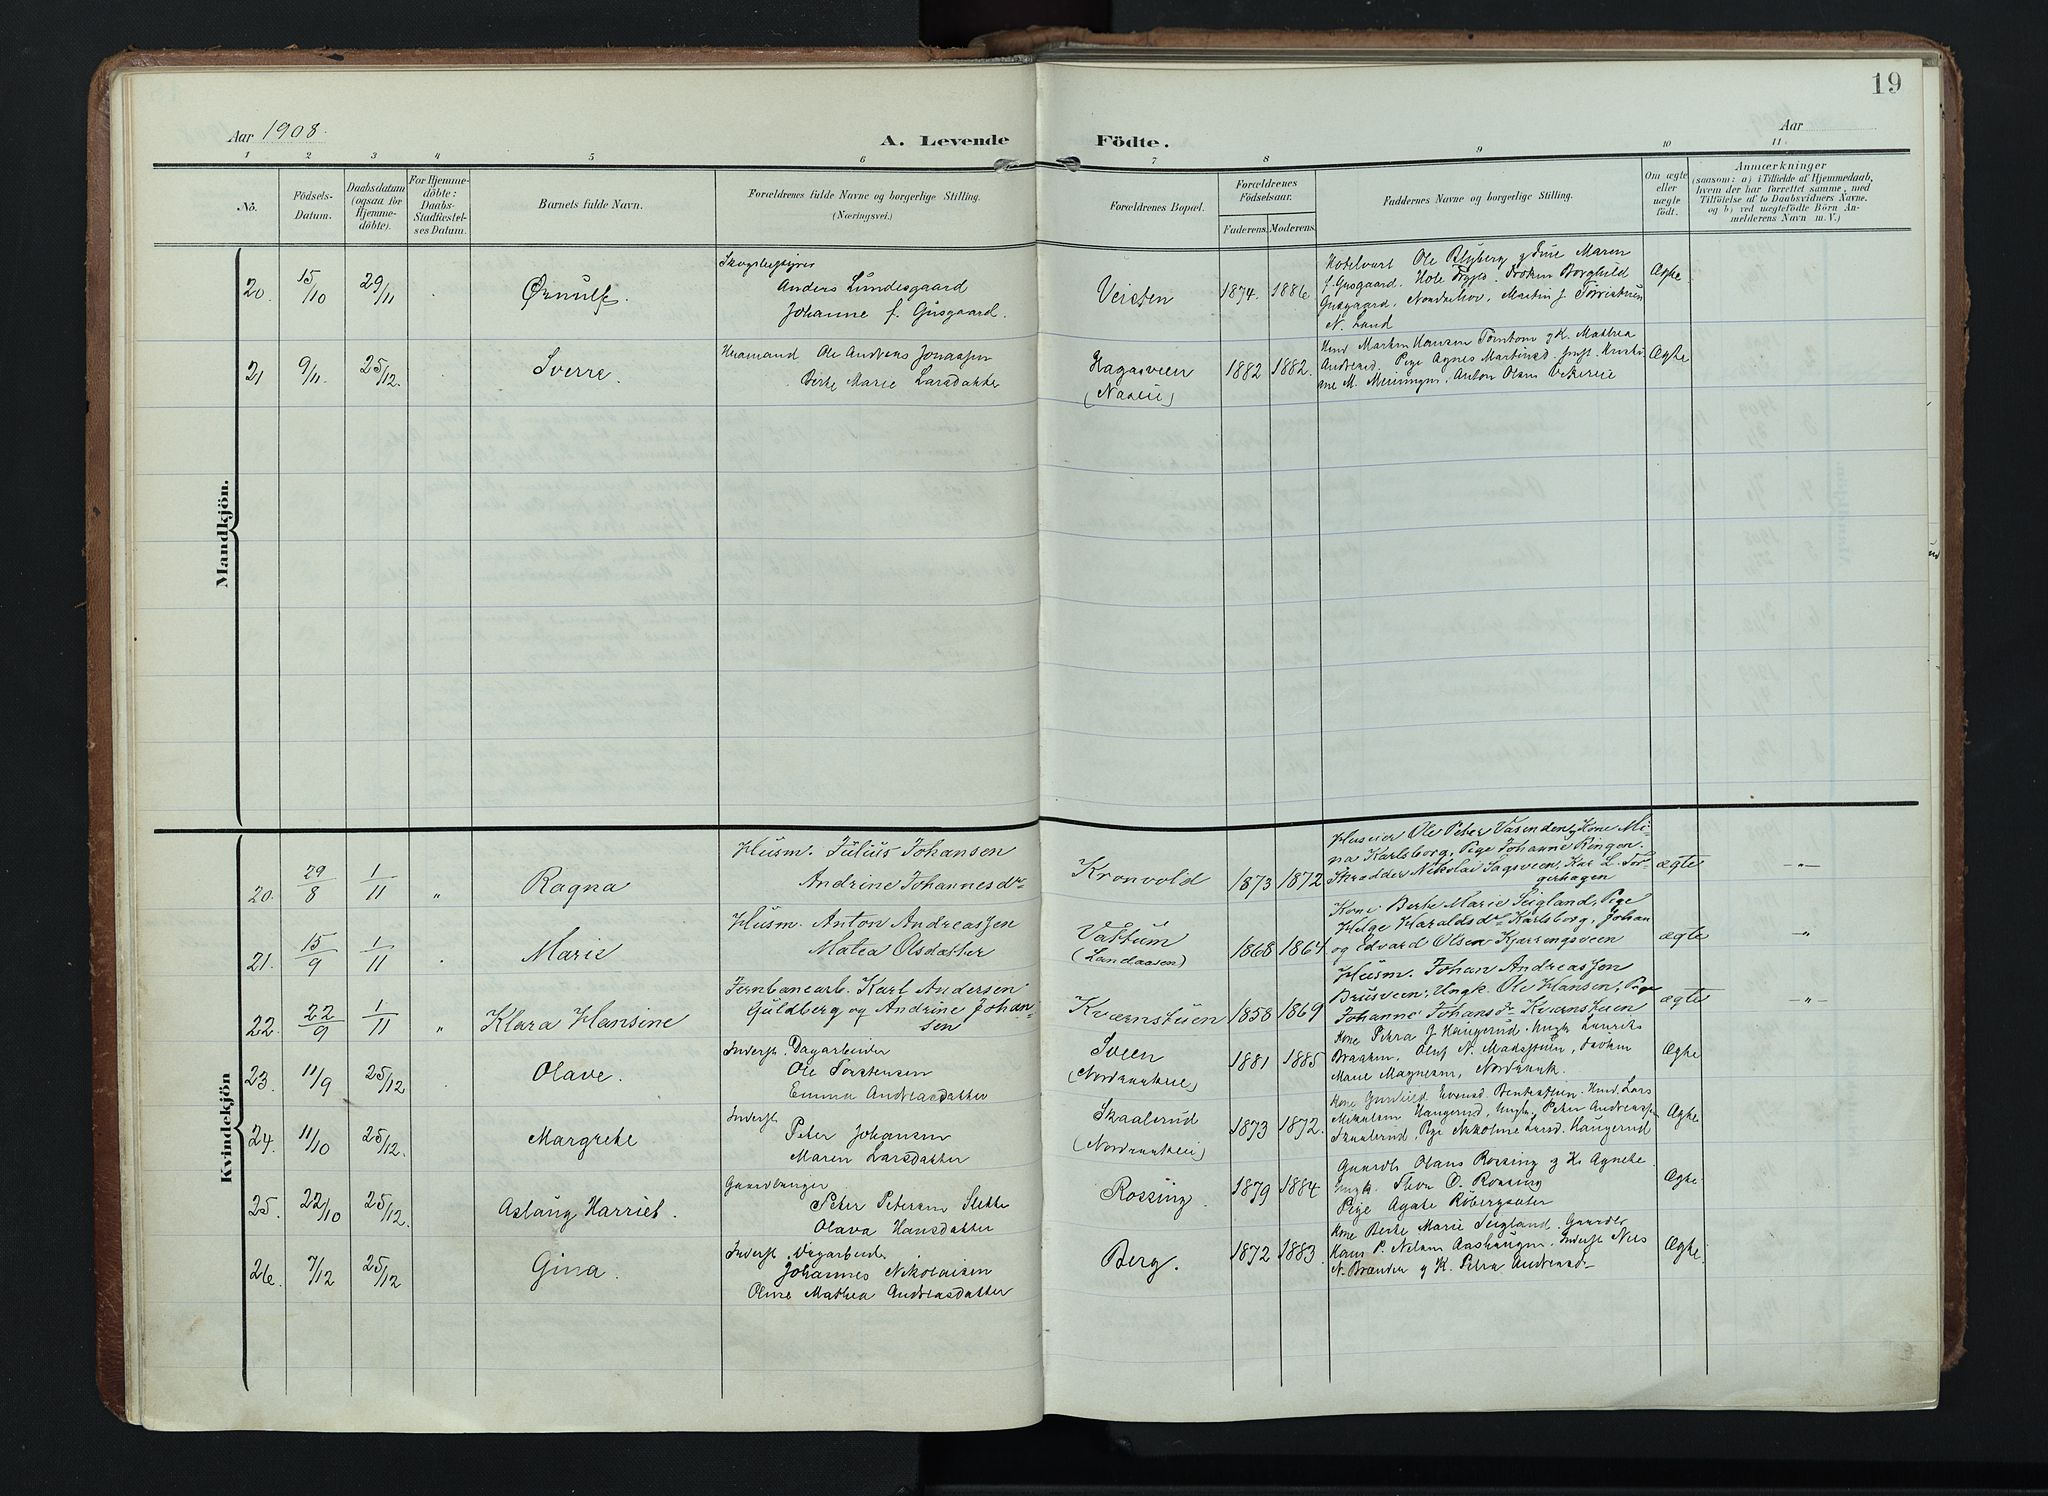 19
Aar 1908.
A. Levende Födte.
Aar
1 2 3 4 5 6 7 8 9 10 11
No.
Födsels-Datum.
Daabsdatum (ogsaa for Hjemme-döbte).
For Hjemme-döbte: Daabs-Stadfæstel-ses Datum.
Barnets fulde Navn.
Forældrenes fulde Navne og borgerlige Stilling. (Næringsvei.)
Forældrenes Bopæl.
Forældrenes Födselsaar.
Faderens. Moderens.
Faddernes Navne og borgerlige Stilling.
Om ægte eller uægte födt.
Anmærkninger
(saasom: a) i Tilfælde af Hjemmedaab, hvem der har forrettet samme, med Tilföielse af to Daabsvidners Navne. og b) ved uægtefödte Börn An-melderens Navn m. V.)
Mandkjön.
20. 15/10 29/11 Ørnulf.
Anders Lundesgaard
Johanne f. Gusgaard.
Veisten 1874. 1886
Hotelvært Ole Blyberg g Frue Maren
f. Gusgaard. Hole Frøken Borghild
Gusgaard, Norderhov, Martin J.
N. Land
Ægte
21 9/11. 25/12. Sverre.
Ole Andreas Jonassen
Berte Marie Larsdatter
Hagasveen
1882 1882.
Martin Hansen g K. Mathea
Andreasd. Pige Agnes Martinsd.
M. Anton Olsen
Ægte
Kvindekjön
20. 29/8 1/11 " Ragna
Husm. Julius Johansen
Andrine Johannesdr
Kronvold 1873 1872
Ole Peter Vasenden, Kone Mi-
na Karlsborg, Pige Johanne Ringen.
Skrædder Nikolai Sagsveen, Kar L. Tor-
gerhagen
ægte -"-
21. 15/9 1/11 " Marie
Husm. Anton Andreassen
Matea Olsdatter
Vattum
(Landaasen)
1868 1864
Kone Berte Marie Seigland, Pige
Helge Haraldsdr Karlsborg, Johan
og Edvard Olsen Kjærringsveen
ægte "
22. 22/9 1/11 " Klara Hansine
Jernbanearb. Karl Andersen
Guldberg og Andrine Johan-
sen
Kværnstuen 1858 1869
Husm. Johan Andreassen
Brusveen, Ungk. Ole Hansen, Pige
Johanne Johansdr Kværnstuen
ægte -"-
23. 11/9 25/12 Olave.
Inderst. Dagarbeider
Ole Torstensen
Emma Andreasdatter
Sveen
1881 1885
Kone Petra G. Haugerud. Ungk. Laurits
Braaten, Oluf N. Madsstuen, Frøken
Marie Magnesen,
Ægte
24. 11/10 25/12. Margrethe
Inderst
Peter Johansen
Maren Larsdatter
Skaalerud
1873 1872.
Kone Gunhild Evensd. Lars
Mikkelsen Haugerud, Ungk. Peter Andreass.
Skaalerud, Pige Nikoline Larsd. Haugerud
Ægte
25. 22/10 25/12. Aslaug Harriet.
Gaardbruger
Peter Petersen Slette
Olava Hansdatter
Rossing. 1879 1884
Gaardbr Olaus Rossing g K. Agnete
Ungk. Thore O. Rossing
Pige Agate Røbergsæter
Ægte
26. 7/12 25/12 Gina.
Inderst. Dagarbeid.
Johannes Nikolaisen
Oline Mathea Andreasdatter
Berg. 1872 1883
Kone Berte Marie Seigland. Gaardbr
Hans P. Nilsen Aashaugen, Inderst Nils
N. Brænden g K. Petra Andreasd
Ægte